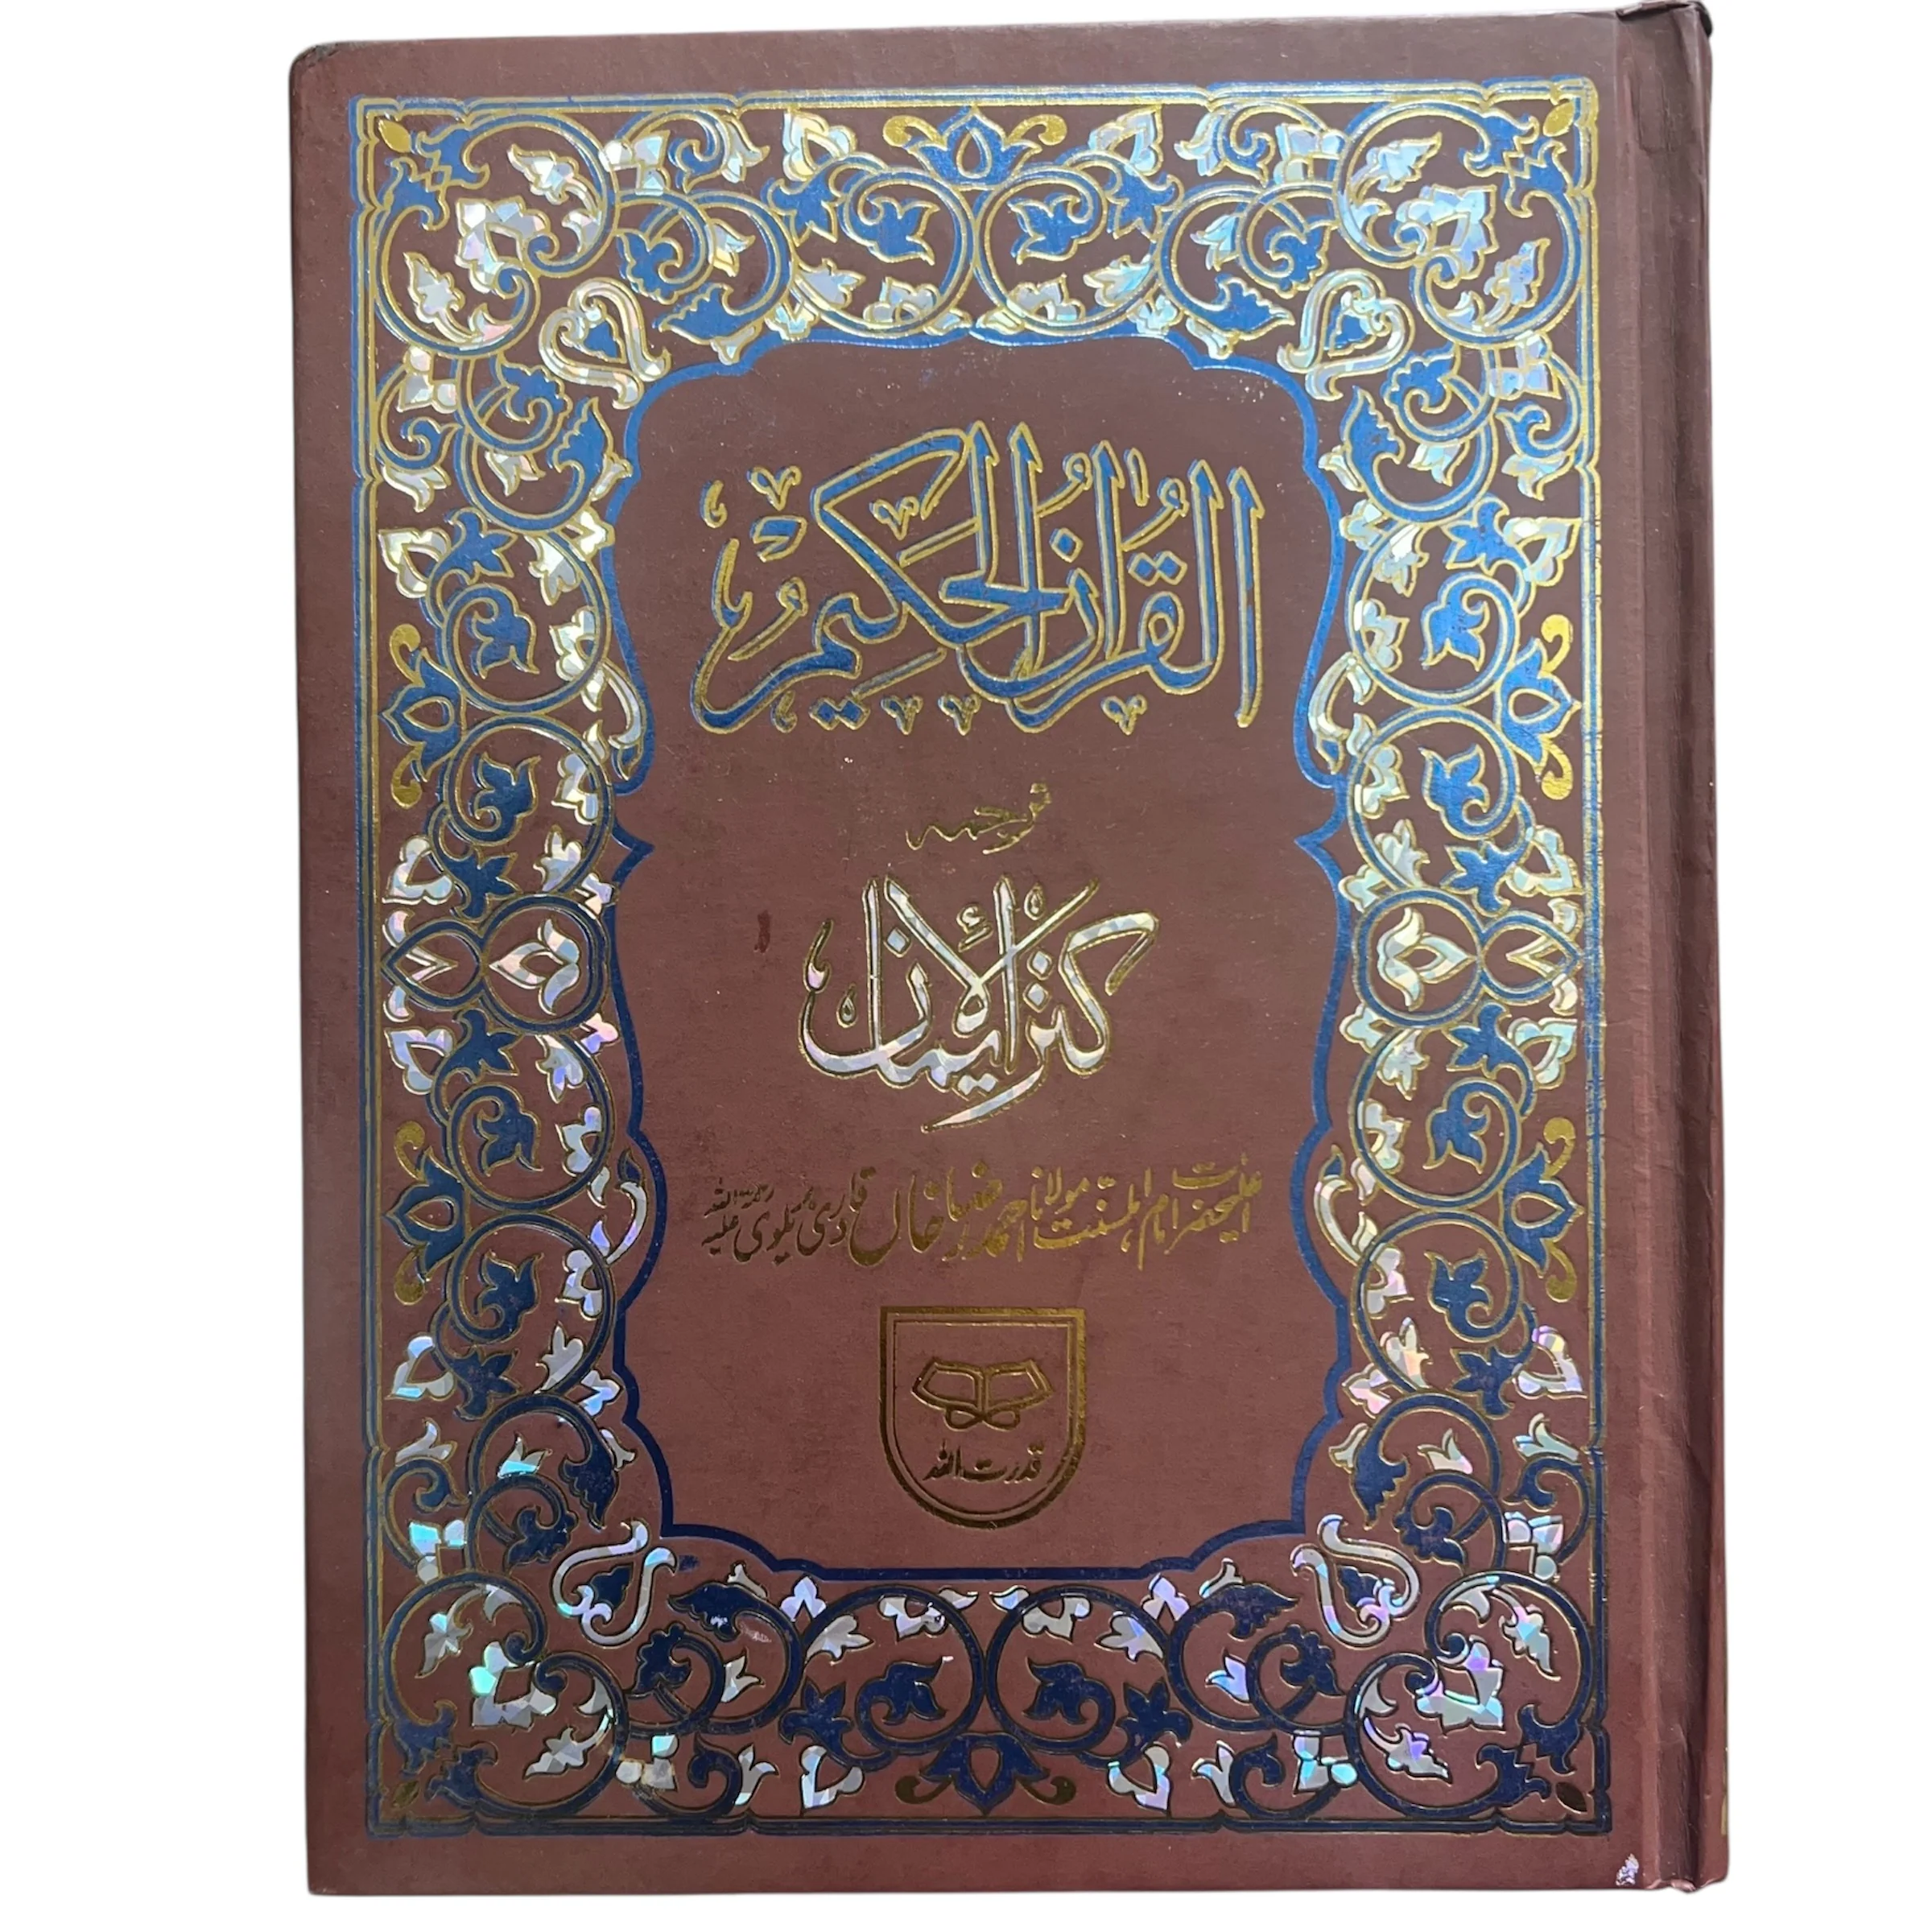 القرآن الحکیم
ترجمہ
کنز الایمان
اعلیحضرت امام اہلسنت مولانا احمد رضا خاں قادری بریلوی رحمۃ اللہ علیہ
قدرت اللہ